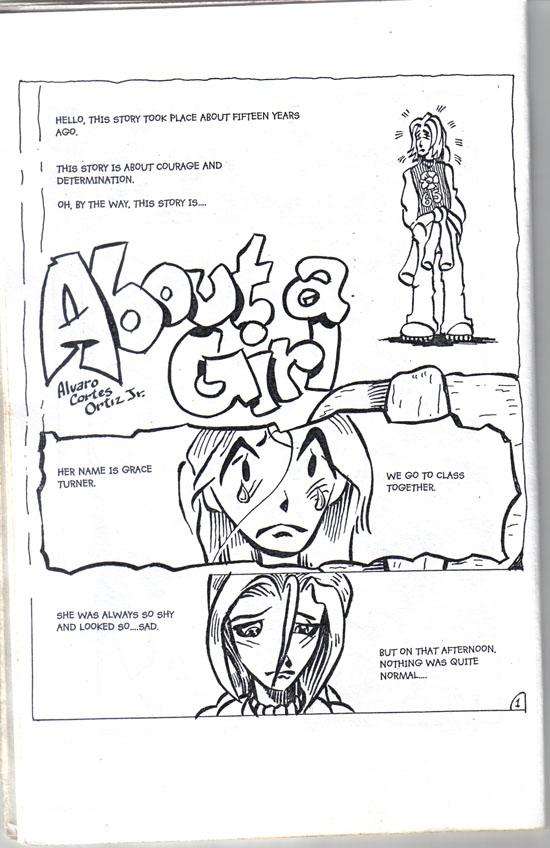 HELLO, THIS STORY TOOK PLACE ABOUT FIFTEEN YEARS
AGO.
THIS STORY IS ABOUT COURAGE AND
DETERMINATION.
OH, BY THE WAY, THIS STORY IS....
About a
Girl
Alvaro
Cortes
Ortiz Jr.
HER NAME IS GRACE
TURNER.
WE GO TO CLASS
TOGETHER.
SHE WAS ALWAYS SO SHY
AND LOOKED SO....SAD.
BUT ON THAT AFTERNOON,
NOTHING WAS QUITE
NORMAL....
1